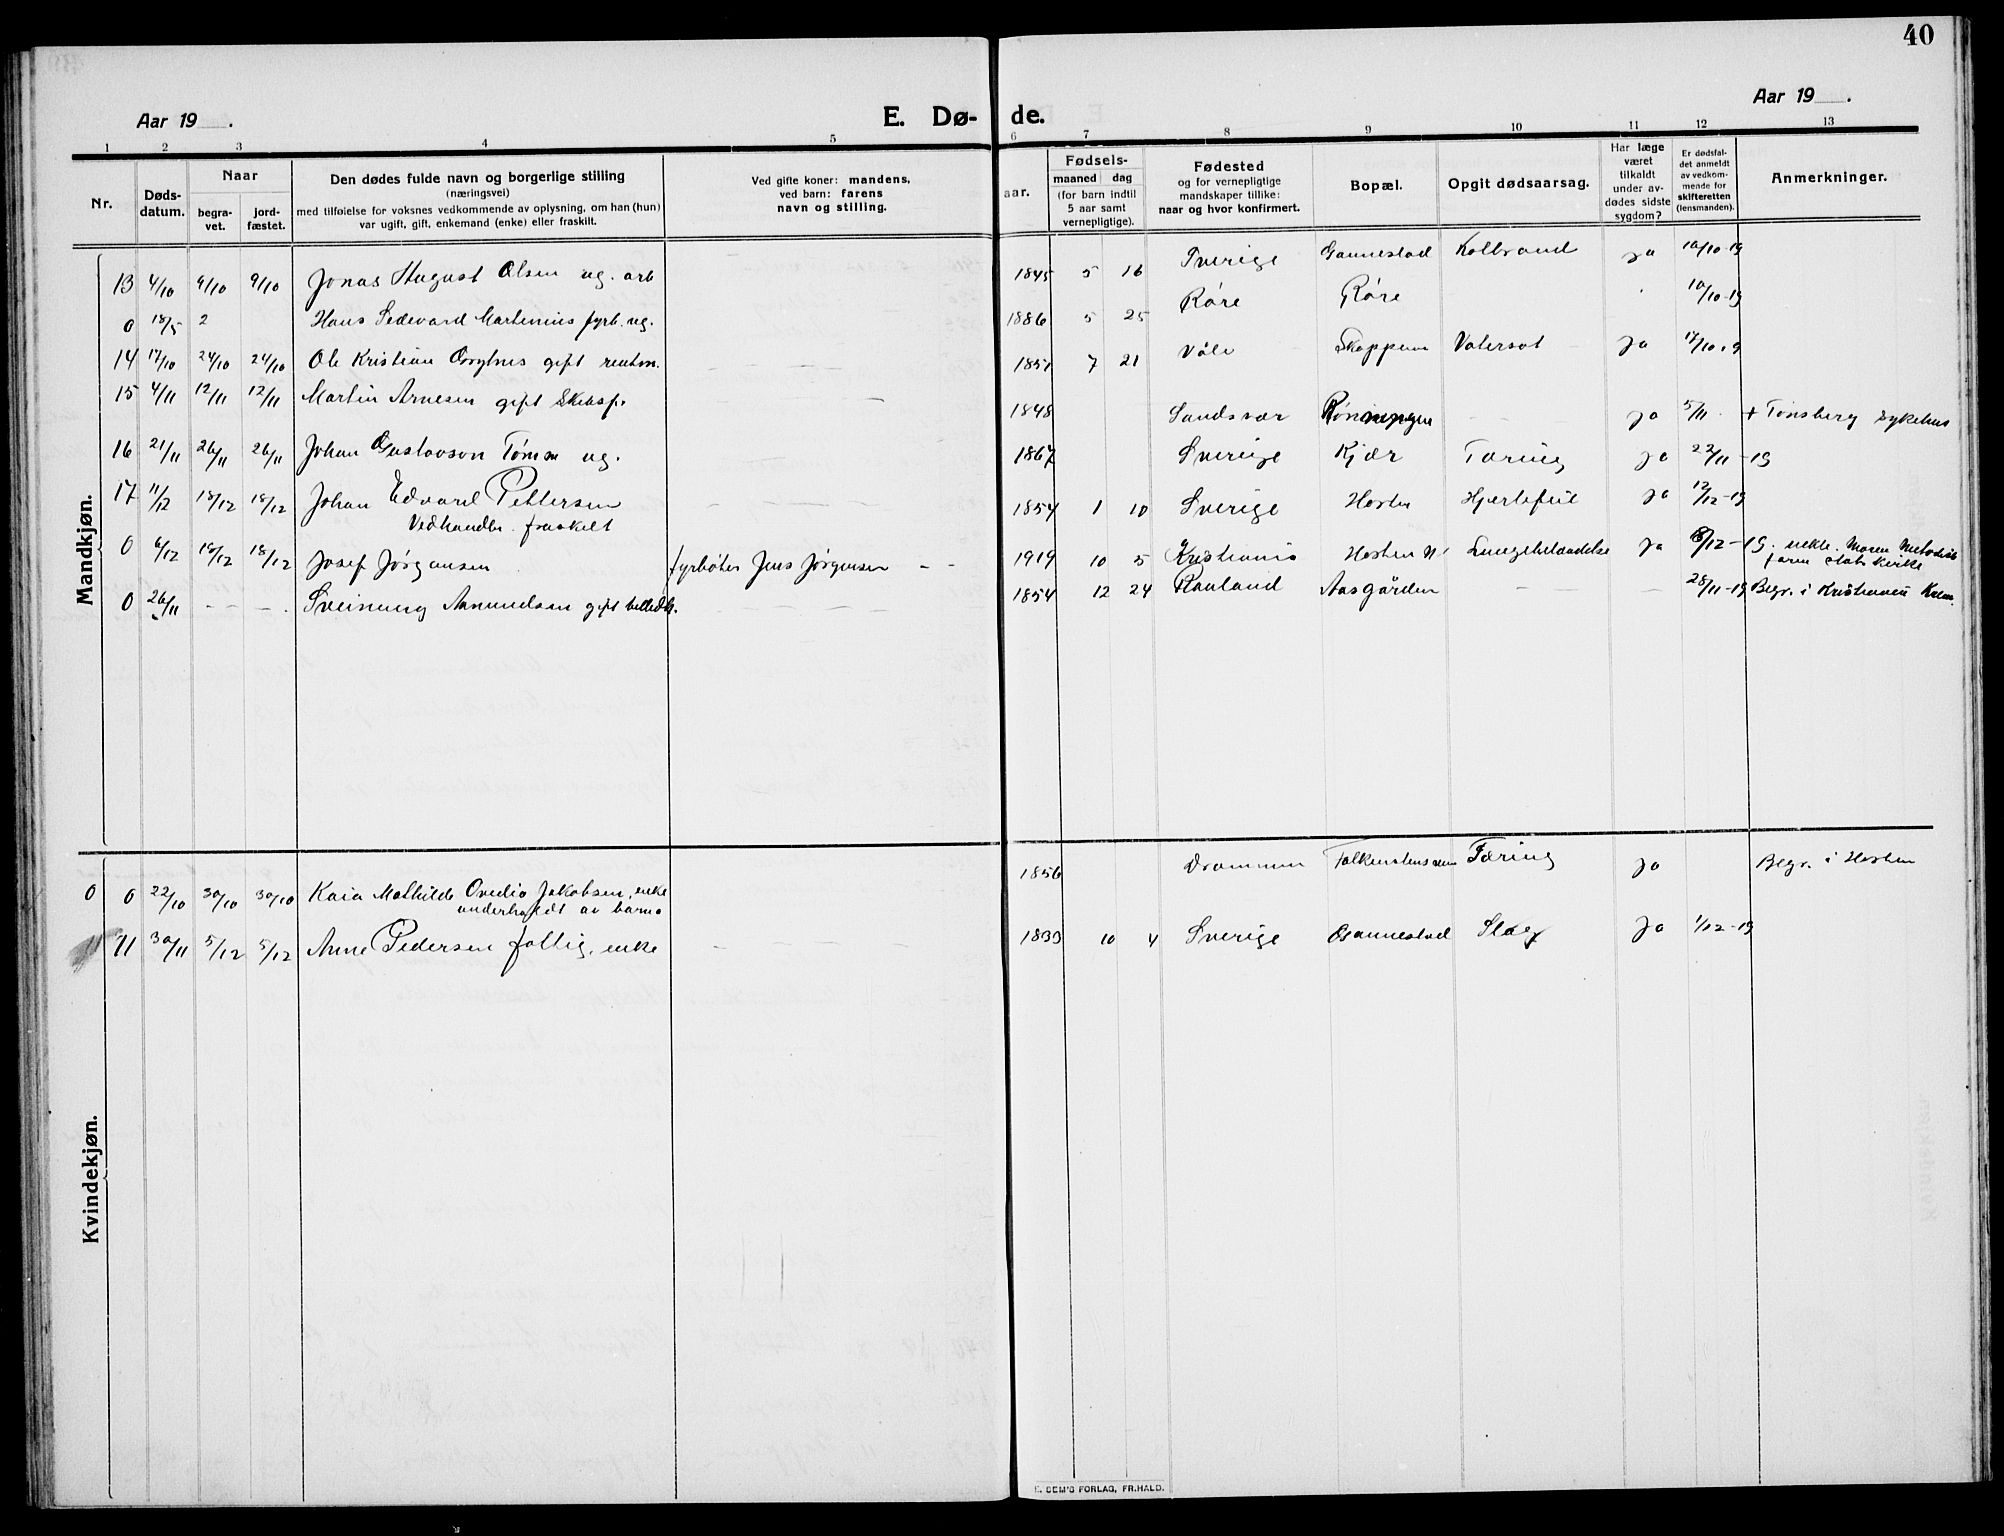 40
Aar 19 .
E. Dø-
de.
Aar 19 .
1 2 3 4 5 6 7 8 9 10 11 12 13
Nr.
Døds-
datum.
Naar
begra-
vet.
jord-
fæstet.
Den dødes fulde navn og borgerlige stilling
(næringsvei)
med tilføielse for voksnes vedkommende av oplysning, om han (hun)
var ugift, gift, enkemand (enke) eller fraskilt.
Ved gifte koner: mandens,
ved barn: farens
navn og stilling.
aar.
Fødsels-
maaned dag
(for barn indtil
5 aar samt
vernepligtige).
Fødested
og for vernepligtige
mandskaper tillike:
naar og hvor konfirmert.
Bopæl.
Opgit dødsaarsag.
Har læge
været
tilkaldt
under av-
dødes sidste
sygdom?
Er dødsfal-
det anmeldt
av vedkom-
mende for
skifteretten
(lensmanden).
Anmerkninger.
Mandkjøn.
13 4/10 9/10 9/10 Jonas August Olsen ug. arb 1845 5 16 Sverige Gannestad Kolbrand ja 10/10-19
0 18/5 2 Hans Sedevard Martinius fyrb. ug. 1886 5 25 Røre Røre 10/10-19
14 17/10 24/10 24/10 Ole Kristian gift rentn. — — — — 1851 7 21 Våle Skoppum Vatersot ja 17/10
15 4/11 12/11 12/11 Martin Arnesen gift Skibsf. — 1848 Sandsvær — — ja 5/11 + Tønsberg sykehus
16 21/11 26/11 26/11 Johan Gustavson Tømm ug. — — 1867 Sverige Kjær Tæring ja 22/11-19
17 11/12 18/12 18/12 Johan Edvard Pettersen — — — 1854 1 10 Sverige Horten Hjertefeil ja 12/12-19
Vedhandler fraskilt
0 6/12 18/12 18/12 Josef Jørgensen fyrbøter Jens Jørgensen — — 1919 10 5 Kristiania Horten Lungebetændelse ja 8/12-19 Moren Metodist
faren stats kirke
0 26/11 — — — Sveinung Aanundsen gift billedh. 1854 12 24 Rauland Aasgården — — — 28/11-19 Begr. i Kristiania Krem.
Kvindekjøn.
0 0 22/10 30/10 30/10 Kaia Mathilde Ovedia Jakobsen, enke 1856 Drammen Falkenstensveien Tæring ja Begr. i Horten
underholdt av barna
11 11 30/11 5/12 5/12 Anne Pedersen fattig, enke — — — 1839 10 4 Sverige Gannestad Slag ja 1/12-19
E. SEM'S FORLAG, FR.HALD.